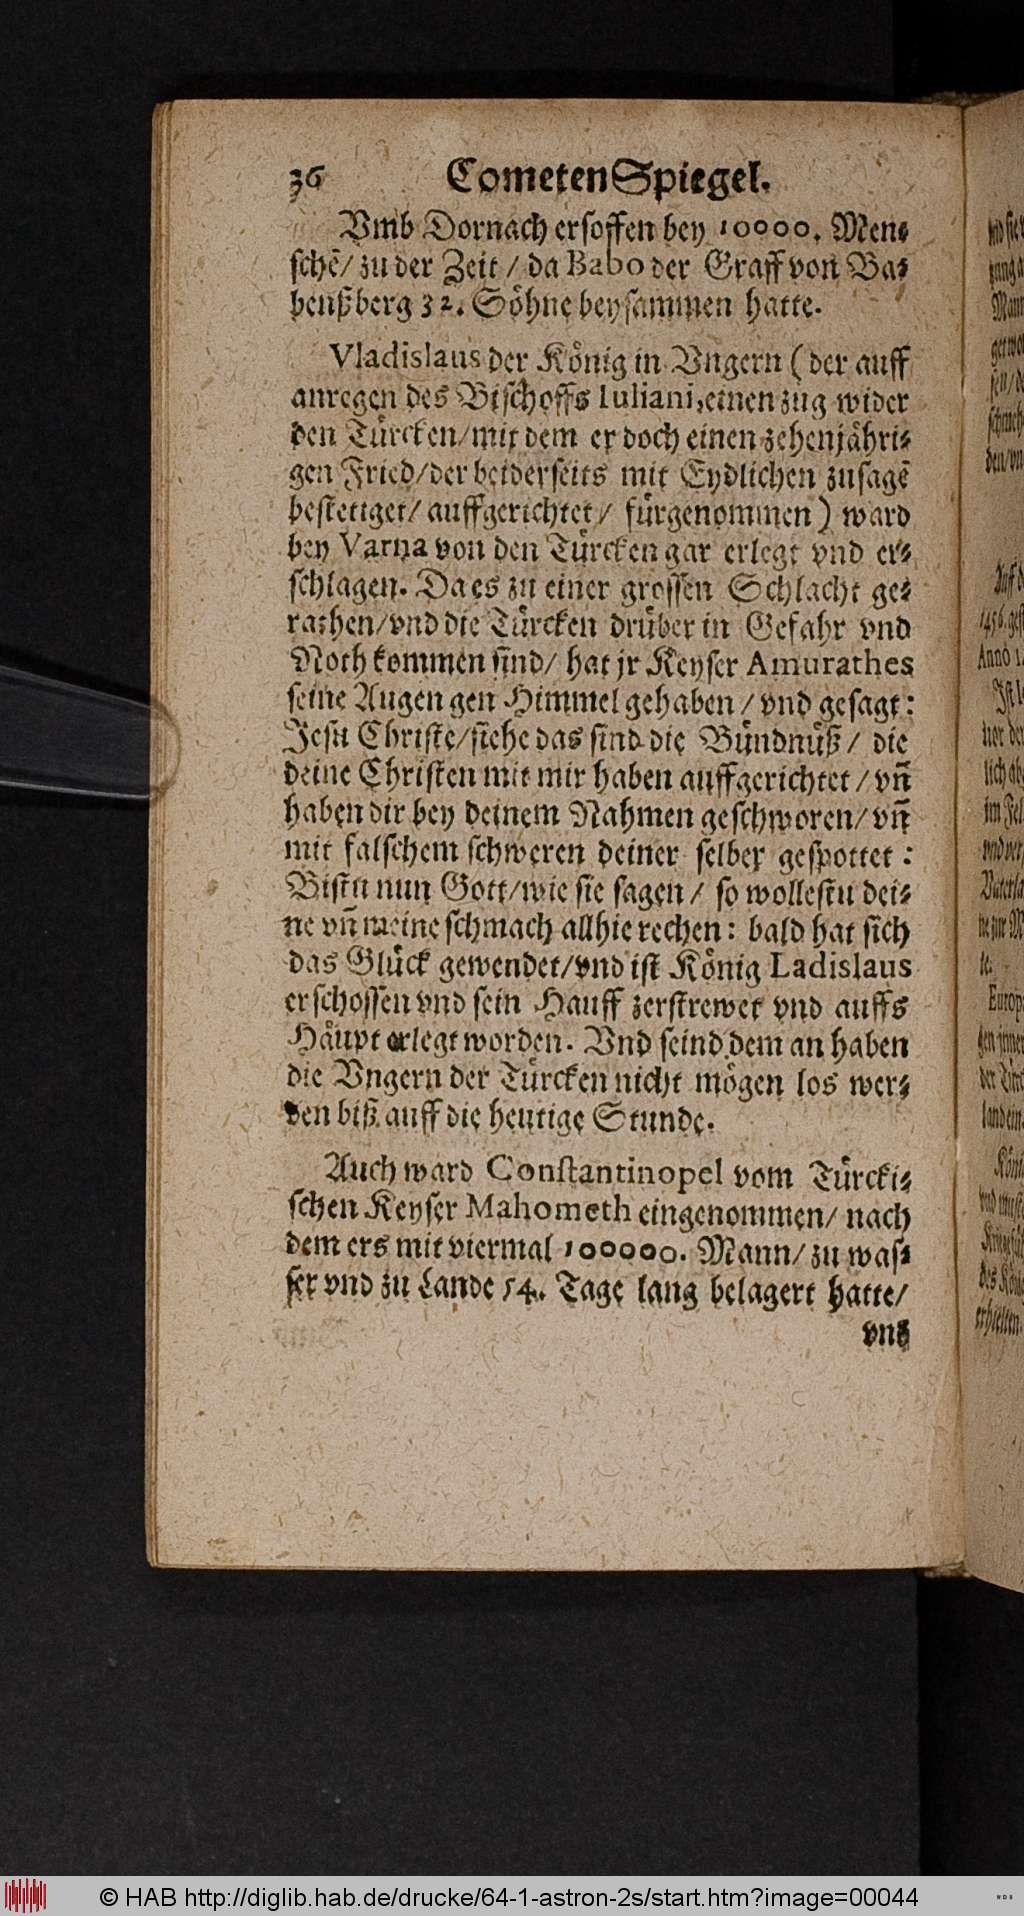 36 Cometen Spiegel.
Vmb Dornach ersoffen bey 10000. Men-
schē/ zu der Zeit / da Babo der Graff von Ba-
benßberg 32. Söhne beysammen hatte.
Vladislaus der König in Vngern (der auff
anregen des Bischoffs Iuliani, einen zug wider
den Türcken/ mit dem er doch einen zehenjähri-
gen Fried/ der beiderseits mit Eydlichen zusagē
bestetiget/ auffgerichtet/ fürgenommen) ward
bey Varna von den Türcken gar erlegt vnd er-
schlagen. Da es zu einer grossen Schlacht ge-
rathen/ vnd die Türcken drüber in Gefahr vnd
Noth kommen sind/ hat jr Keyser Amurathes
seine Augen gen Himmel gehaben / vnd gesagt:
Jesu Christe/ siehe das sind die Bündnüß / die
deine Christen mit mir haben auffgerichtet / vn̄
haben dir bey deinem Nahmen geschworen/ vn̄
mit falschem schweren deiner selber gespottet:
Bistu nun Gott/ wie sie sagen / so wollestu dei-
ne vn̄ meine schmach allhie rechen: bald hat sich
das Glück gewendet/ vnd ist König Ladislaus
erschossen vnd sein Hauff zerstrewet vnd auffs
Häupt erlegt worden. Vnd seind dem an haben
die Vngern der Türcken nicht mögen los wer-
den biß auff die heutige Stunde.
Auch ward Constantinopel vom Türcki-
schen Keyser Mahometh eingenommen/ nach
dem ers mit viermal 100000. Mann/ zu was-
ser vnd zu Lande 54. Tage lang belagert hatte/
vnd
© HAB http://diglib.hab.de/drucke/64-1-astron-2s/start.htm?image=00044